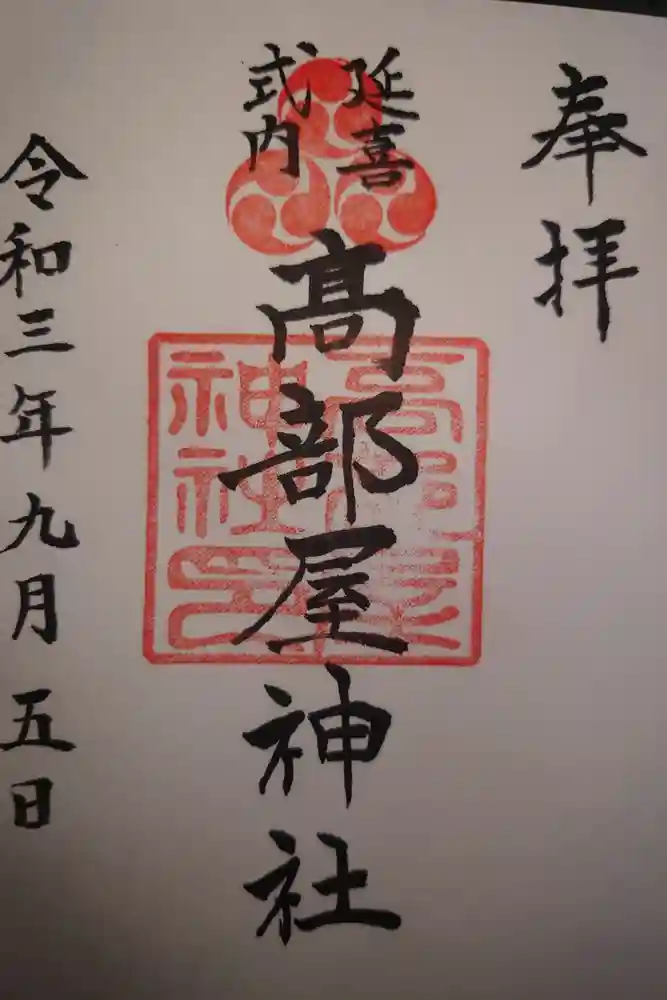 奉拝
延喜
式内
高部屋神社
高部屋
神社印
令和三年九月五日